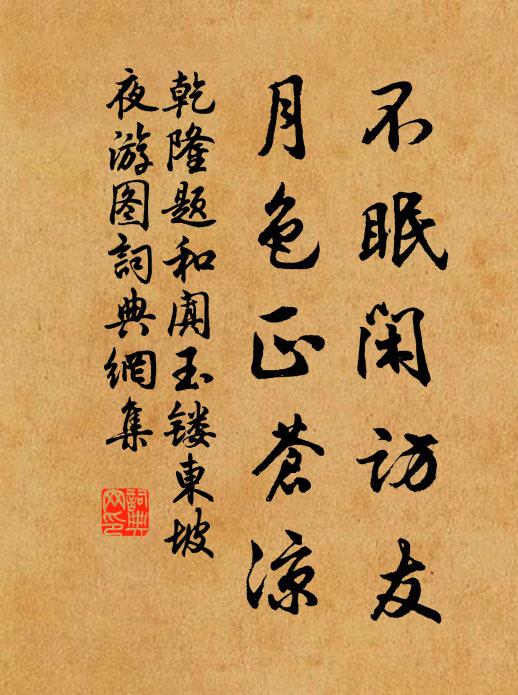 不眠閑訪友
月色正蒼凉
乾隆题和阗玉镂東坡
夜游图詞典網集
詞典网印